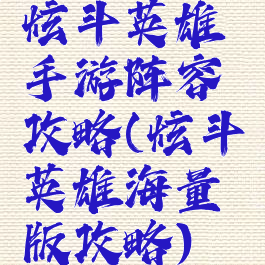 炫斗英雄
手游阵容
攻略(炫斗
英雄海量
版攻略)